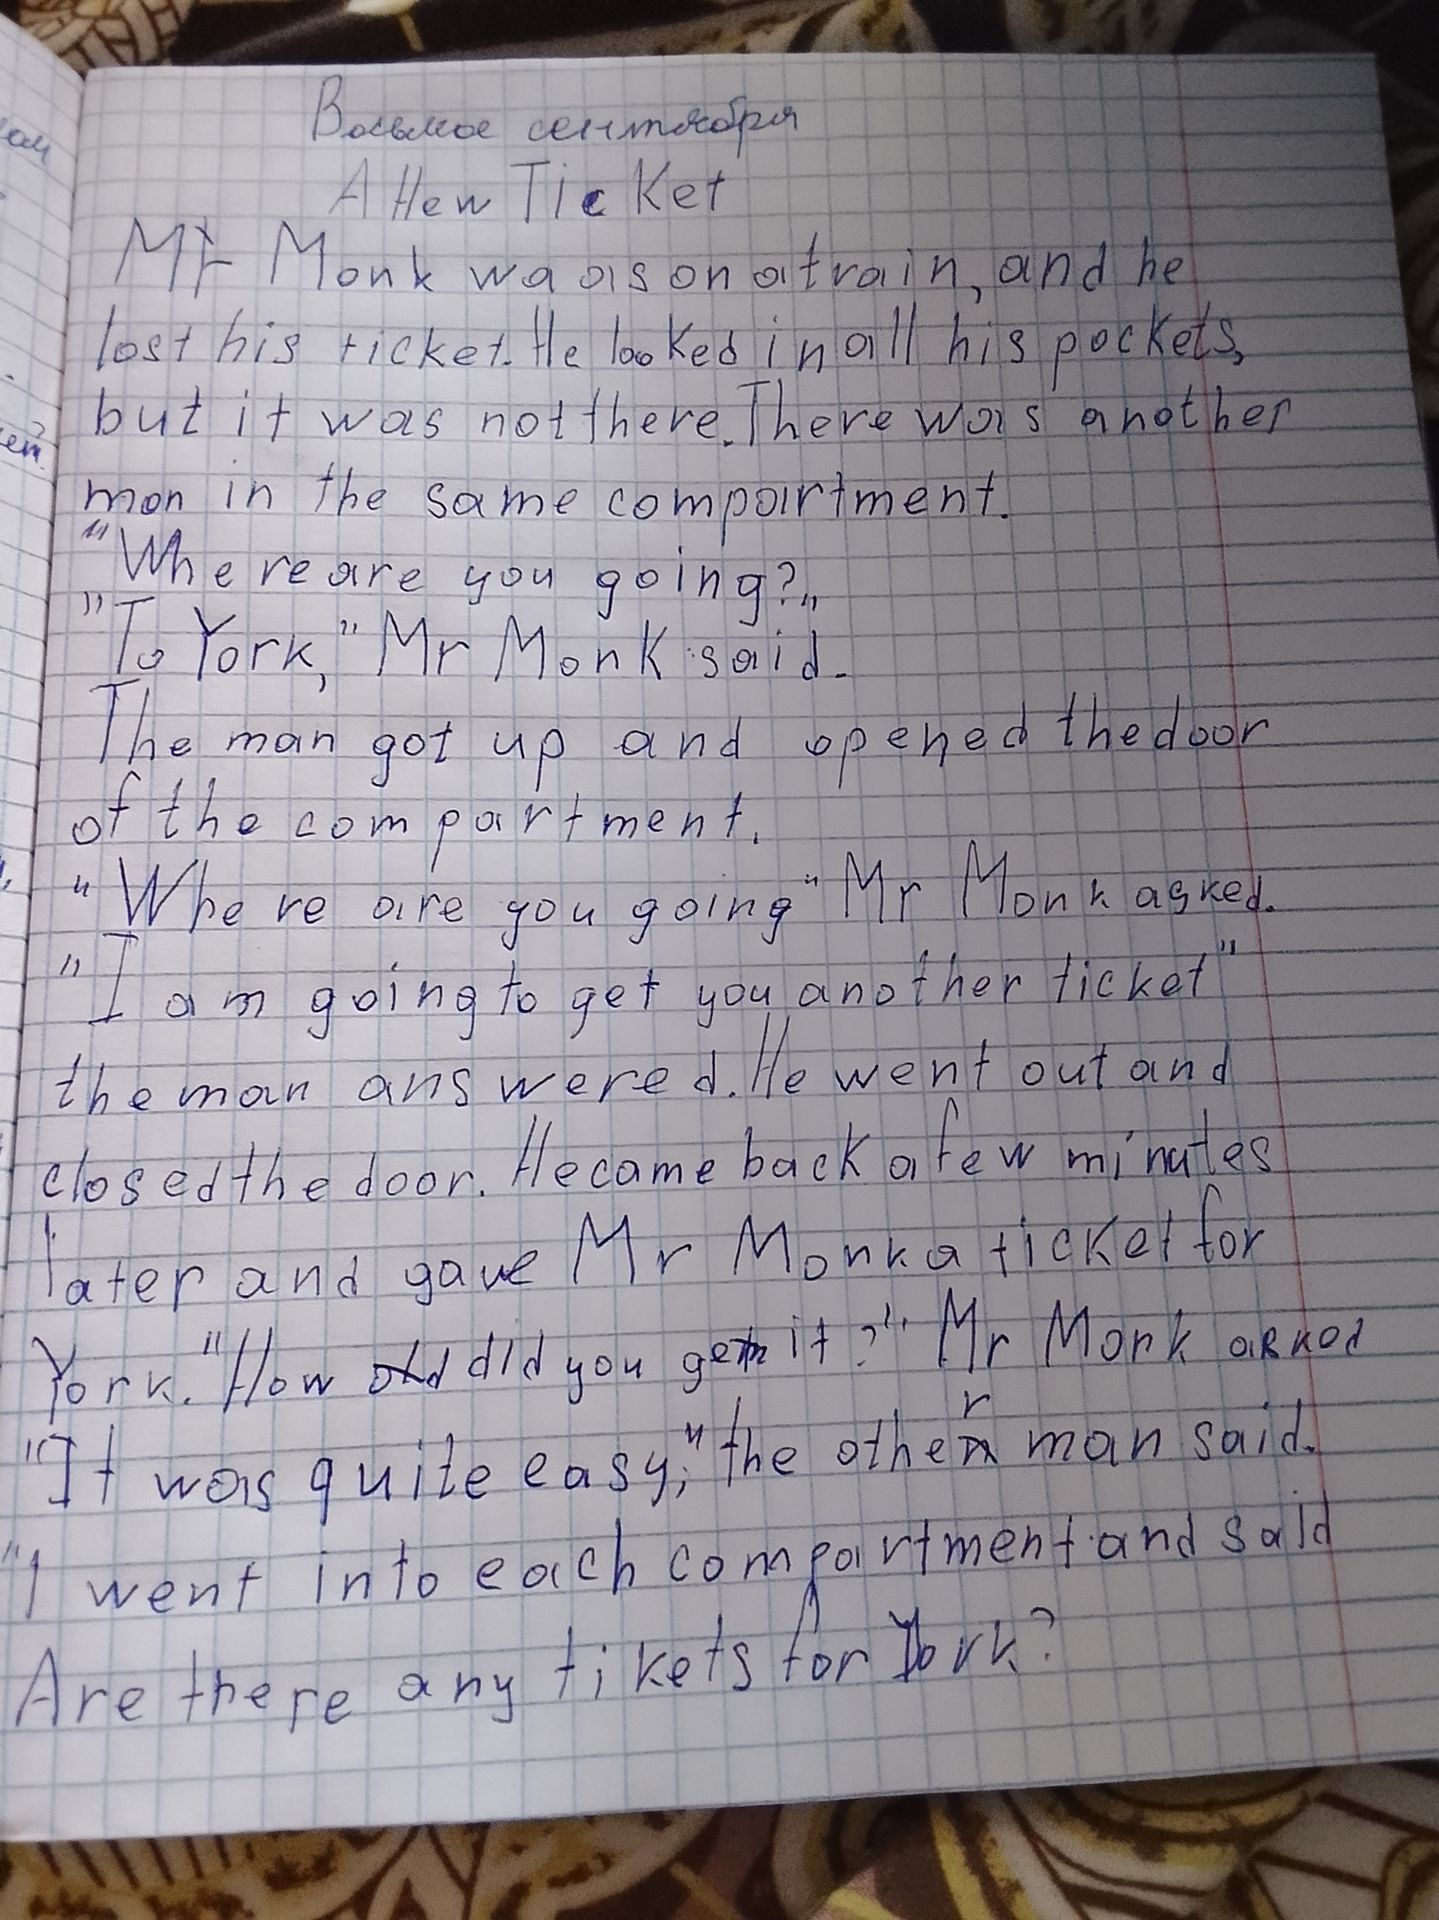 Восьмое сентября
A New Ticket
Mr Monk wa as on a train, and he
lost his ticket. He looked in all his pockets,
but it was not there. There was another
man in the same compartment.
"Where are you going?"
"To York," Mr Monk said.
The man got up and opened the door
of the compartment.
"Where are you going" Mr Monk asked.
"I am going to get you another ticket"
the man answered. He went out and
closed the door. He came back a few minutes
later and gave Mr Monk a ticket for
York. "How did you get it?" Mr Monk asked
"It was quite easy," the other man said.
"I went into each compartment and said
Are there any tikets for York?